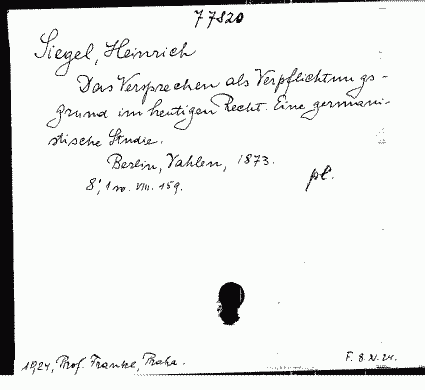 77820
Siegel, Heinrich
Das Versprechen als Verpflichtungs-
grund im heutigen Recht. Eine germani-
stische Studie.
Berlin, Vahlen, 1873.
8°, 1 vo. VIII. 159.
pl.
1924, Prof. Frankl, Praha.
F. 8.XI.24.